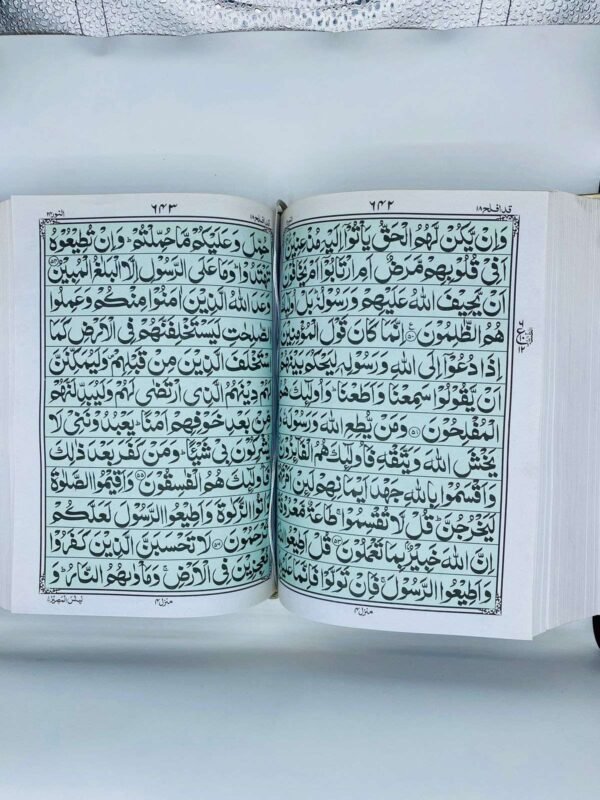 قد افلح ۱۸
۶۴۲
وَاِنْ يَّكُنْ لَّهُمُ الْحَقُّ يَاْتُوْۤا اِلَيْهِ مُذْعِنِيْنَ
اَفِيْ قُلُوْبِهِمْ مَّرَضٌ اَمِ ارْتَابُوْۤا اَمْ يَخَافُوْنَ
اَنْ يَّحِيْفَ اللّٰهُ عَلَيْهِمْ وَرَسُوْلُهٗ ؕ بَلْ
هُمُ الظّٰلِمُوْنَ ﴿۵۰﴾ اِنَّمَا كَانَ قَوْلَ الْمُؤْمِنِيْنَ
اِذَا دُعُوْۤا اِلَى اللّٰهِ وَرَسُوْلِهٖ لِيَحْكُمَ بَيْنَهُمْ
اَنْ يَّقُوْلُوْا سَمِعْنَا وَاَطَعْنَا ؕ وَاُولٰٓئِكَ هُمُ
الْمُفْلِحُوْنَ ﴿۵۱﴾ وَمَنْ يُّطِعِ اللّٰهَ وَرَسُوْلَهٗ وَ
يَخْشَ اللّٰهَ وَيَتَّقْهِ فَاُولٰٓئِكَ هُمُ الْفَآئِزُوْنَ
وَاَقْسَمُوْا بِاللّٰهِ جَهْدَ اَيْمَانِهِمْ لَئِنْ
لَيَخْرُجُنَّ ؕ قُلْ لَّا تُقْسِمُوْا ۚ طَاعَةٌ مَّعْرُوْفَةٌ
اِنَّ اللّٰهَ خَبِيْرٌۢ بِمَا تَعْمَلُوْنَ ﴿۵۳﴾ قُلْ اَطِيْعُوا
وَاَطِيْعُوا الرَّسُوْلَ ۚ فَاِنْ تَوَلَّوْا فَاِنَّمَا عَلَيْهِ
منزل ۴
قد افلح ۱۸
۶۴۳
النور ۲۴
حُمِّلَ وَعَلَيْكُمْ مَّا حُمِّلْتُمْ ؕ وَاِنْ تُطِيْعُوْهُ
تَهْتَدُوْا ؕ وَمَا عَلَى الرَّسُوْلِ اِلَّا الْبَلٰغُ الْمُبِيْنُ ﴿۵۴﴾
وَعَدَ اللّٰهُ الَّذِيْنَ اٰمَنُوْا مِنْكُمْ وَعَمِلُوا
الصّٰلِحٰتِ لَيَسْتَخْلِفَنَّهُمْ فِي الْاَرْضِ كَمَا
اسْتَخْلَفَ الَّذِيْنَ مِنْ قَبْلِهِمْ ۪ وَلَيُمَكِّنَنَّ
لَهُمْ دِيْنَهُمُ الَّذِي ارْتَضٰى لَهُمْ وَلَيُبَدِّلَنَّهُمْ
مِّنْۢ بَعْدِ خَوْفِهِمْ اَمْنًا ؕ يَعْبُدُوْنَنِيْ لَا
يُشْرِكُوْنَ بِيْ شَيْـًٔا ؕ وَمَنْ كَفَرَ بَعْدَ ذٰلِكَ
فَاُولٰٓئِكَ هُمُ الْفٰسِقُوْنَ ﴿۵۵﴾ وَاَقِيْمُوا الصَّلٰوةَ
وَاٰتُوا الزَّكٰوةَ وَاَطِيْعُوا الرَّسُوْلَ لَعَلَّكُمْ
تُرْحَمُوْنَ ﴿۵۶﴾ لَا تَحْسَبَنَّ الَّذِيْنَ كَفَرُوْا
مُعْجِزِيْنَ فِي الْاَرْضِ ۚ وَمَاْوٰىهُمُ النَّارُ ؕ وَ
منزل ۴
لبئس المصير